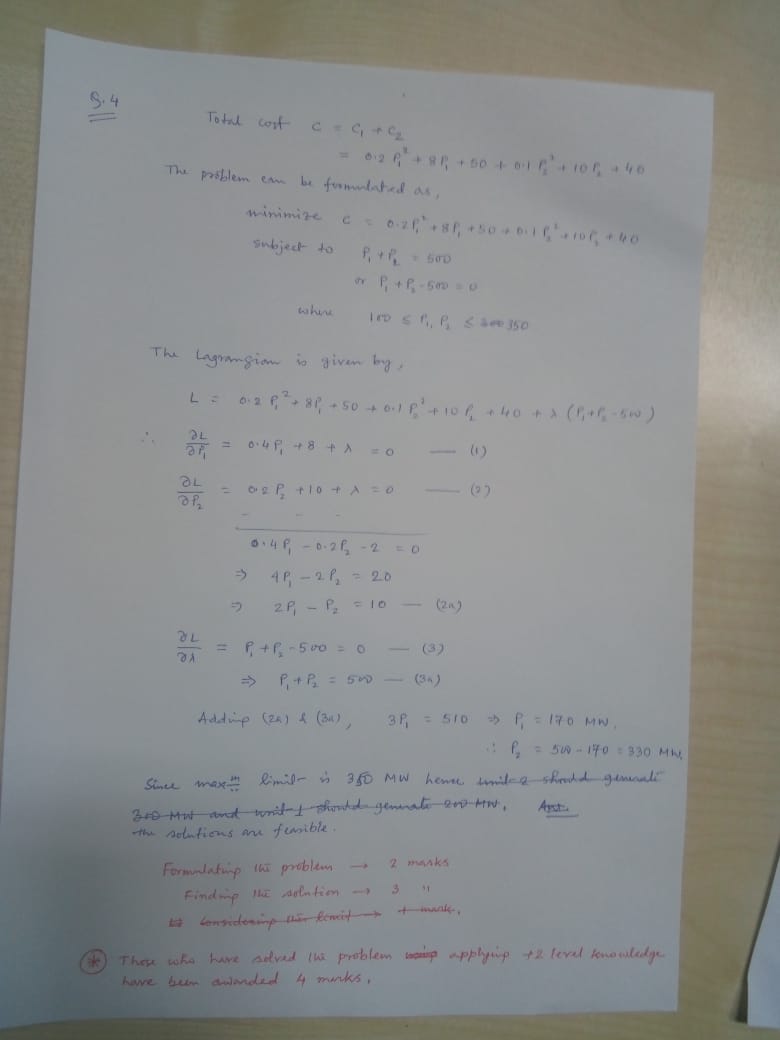 Q.4
Total cost C = C₁ + C₂
= 0.2 P₁² + 8P₁ + 50 + 0.1 P₂² + 10 P₂ + 40
The problem can be formulated as,
minimize C = 0.2P₁² + 8P₁ + 50 + 0.1 P₂² + 10P₂ + 40
subject to P₁ + P₂ = 500
or P₁ + P₂ - 500 = 0
where 100 ≤ P₁, P₂ ≤ 300 350
The Lagrangian is given by,
L = 0.2 P₁² + 8P₁ + 50 + 0.1 P₂² + 10 P₂ + 40 + λ (P₁+P₂-500)
∴ ∂L/∂P₁ = 0.4P₁ + 8 + λ = 0 — (1)
∂L/∂P₂ = 0.2 P₂ + 10 + λ = 0 — (2)
- - -
0.4P₁ - 0.2P₂ - 2 = 0
⇒ 4P₁ - 2P₂ = 20
⇒ 2P₁ - P₂ = 10 — (2a)
∂L/∂λ = P₁ + P₂ - 500 = 0 — (3)
⇒ P₁ + P₂ = 500 — (3a)
Adding (2a) & (3a), 3P₁ = 510 ⇒ P₁ = 170 MW.
∴ P₂ = 500 - 170 = 330 MW.
Since maxm limit is 350 MW hence unit 2 should generate
300 MW and unit 1 should generate 200 MW. Ans.
the solutions are feasible.
Formulating the problem → 2 marks
Finding the solution → 3 "
Considering the limit → 1 mark.
* Those who have solved the problem using applying +2 level knowledge
have been awarded 4 marks.